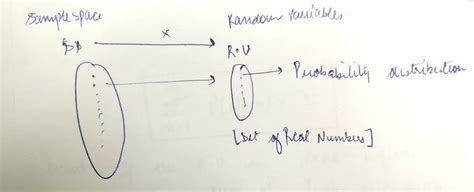 Sample space
Random Variables
X
R.V
Probability distribution
[Set of Real Numbers]